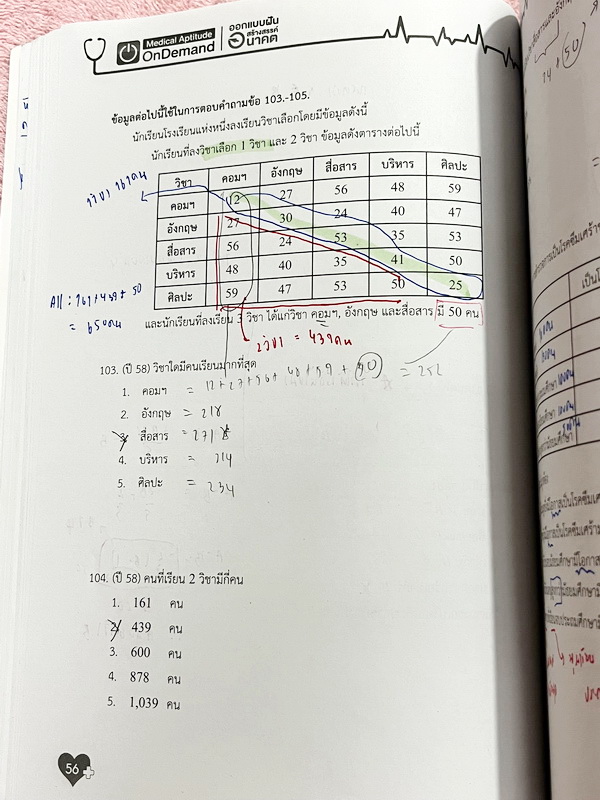 Medical Aptitude
OnDemand
ออกแบบฝัน
สร้างสรรค์
อนาคต
ข้อมูลต่อไปนี้ใช้ในการตอบคำถามข้อ 103.-105.
นักเรียนโรงเรียนแห่งหนึ่งลงเรียนวิชาเลือกโดยมีข้อมูลดังนี้
นักเรียนที่ลงวิชาเลือก 1 วิชา และ 2 วิชา ข้อมูลดังตารางต่อไปนี้
วิชา คอมฯ อังกฤษ สื่อสาร บริหาร ศิลปะ
คอมฯ 12 27 56 48 59
อังกฤษ 27 30 24 40 47
สื่อสาร 56 24 53 35 53
บริหาร 48 40 35 41 50
ศิลปะ 59 47 53 50 25
All : 161+439+50
= 650คน
และนักเรียนที่ลงเรียน 3 วิชา ได้แก่วิชา คอมฯ, อังกฤษ และสื่อสาร มี 50 คน
2วิชา = 439คน
103. (ปี 58) วิชาใดมีคนเรียนมากที่สุด
12+27+56+48+59+50 = 252
1. คอมฯ =
2. อังกฤษ = 218
3. สื่อสาร = 271
4. บริหาร = 214
5. ศิลปะ = 234
104. (ปี 58) คนที่เรียน 2 วิชามีกี่คน
1. 161 คน
2. 439 คน
3. 600 คน
4. 878 คน
5. 1,039 คน
56